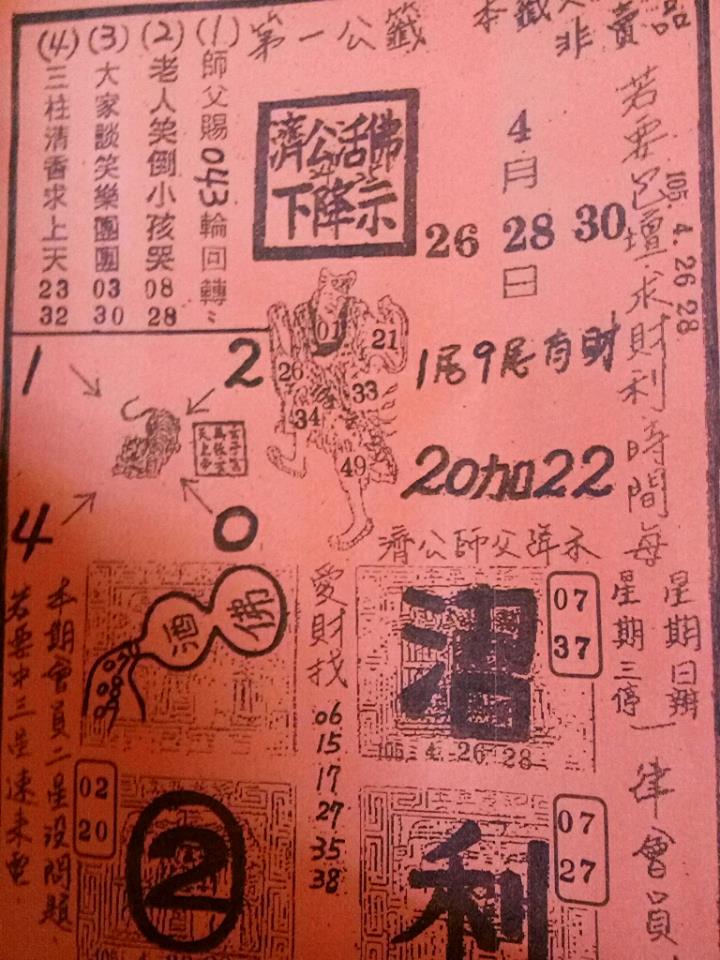 第一公籤
本籤
非賣品
(1)師父賜043輪回轉
(2)老人笑倒小孩哭 08 28
(3)大家談笑樂團團 03 30
(4)三柱清香求上天 23 32
濟公活佛
下降示
4月
26 28 30
日
105 4. 26 28
若要包壇求財利時間每
星期日辦
星期三停
一律會員
1 2
4 0
01
21
26
33
34
49
1尾9尾有財
20加22
濟公師父降示
佛
酒
愛財找
06
15
17
27
35
38
07
37
105 4. 26 28
本期會員二星沒問題
若要中三星速來電
02
20
2
07
27
利